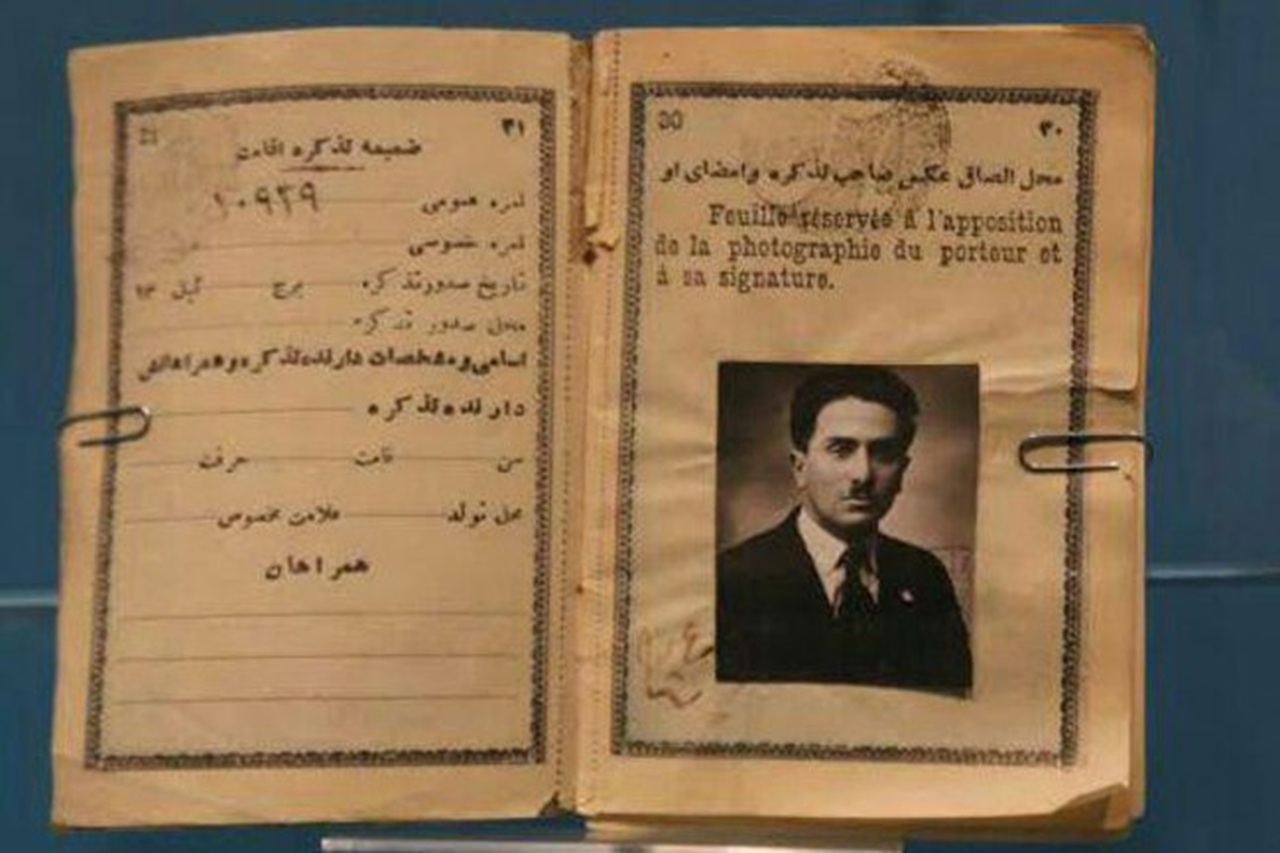 ۳۰
30
محل الصاق عکس صاحب تذکره و امضای او
Feuille réservée à l'apposition
de la photographie du porteur et
à sa signature.
۳۱
31
ضمیمه تذکره اقامت
نمره عمومی ۱۰۹۲۹
نمره خصوصی
تاریخ صدور تذکره برج ئیل
محل صدور تذکره
اسامی و مشخصات دارنده تذکره و همراهانش
دارنده تذکره
سن قامت حرفت
محل تولد علامت مخصوص
همراهان